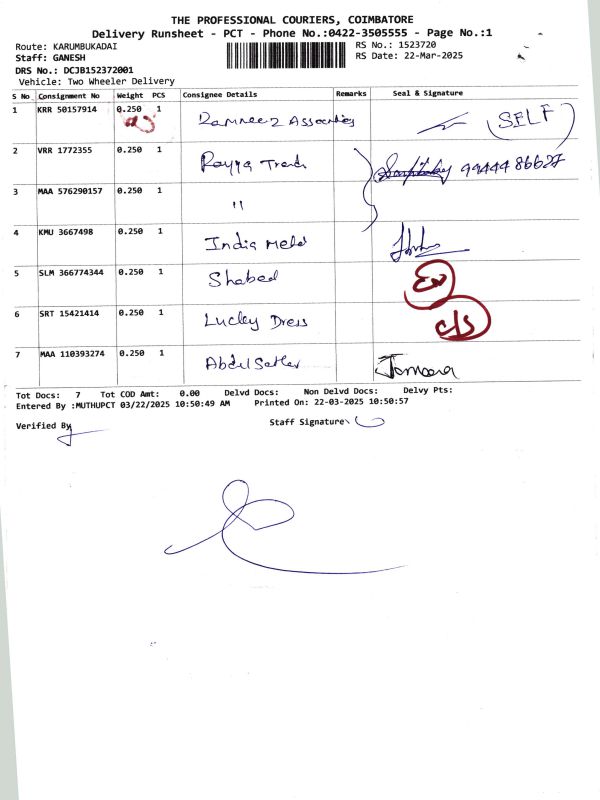 THE PROFESSIONAL COURIERS, COIMBATORE
Delivery Runsheet - PCT - Phone No.:0422-3505555 - Page No.:1
Route: KARUMBUKADAI
RS No.: 1523720
Staff: GANESH
RS Date: 22-Mar-2025
DRS No.: DCJB152372001
Vehicle: Two Wheeler Delivery
S No Consignment No Weight PCS Consignee Details Remarks Seal & Signature
1 KRR 50157914 0.250 1 (SELF)
2 VRR 1772355 0.250 1 99444 86627
3 MAA 576290157 0.250 1 "
4 KMU 3667498 0.250 1 India Metal
5 SLM 366774344 0.250 1 Shabed
6 SRT 15421414 0.250 1 Lucky Dress
7 MAA 110393274 0.250 1 Abdul
Tot Docs: 7 Tot COD Amt: 0.00 Delvd Docs: Non Delvd Docs: Delvy Pts:
Entered By :MUTHUPCT 03/22/2025 10:50:49 AM Printed On: 22-03-2025 10:50:57
Verified By
Staff Signature